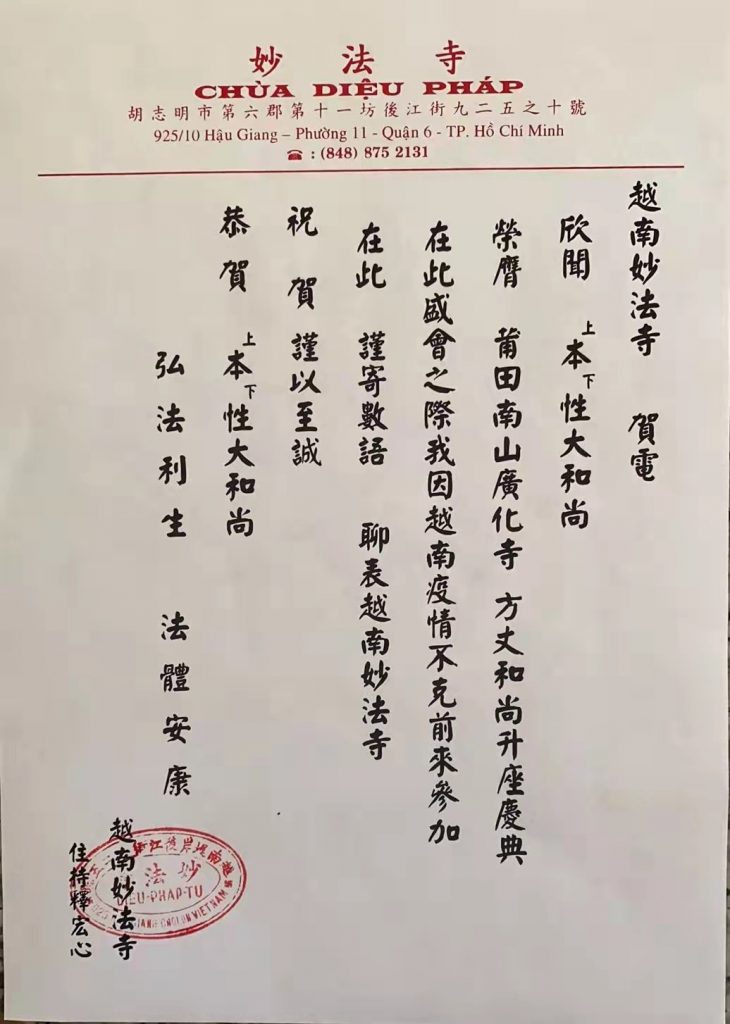 妙法寺
CHÙA DIỆU PHÁP
胡志明市第六郡第十一坊後江街九二五之十號
925/10 Hậu Giang – Phường 11 - Quận 6 - TP. Hồ Chí Minh
☎ : (848) 875 2131
越南妙法寺 賀電
欣聞 上本下性大和尚
榮膺 莆田南山廣化寺 方丈和尚升座慶典
在此盛會之際我因越南疫情不克前來參加
在此 謹寄數語 聊表越南妙法寺
祝賀 謹以至誠
恭賀 上本下性大和尚
弘法利生 法體安康
越南妙法寺
住持釋宏心
越南堤岸後江
妙法
DIEU-PHAP-TU
GIANG CHOLON VIETNAM